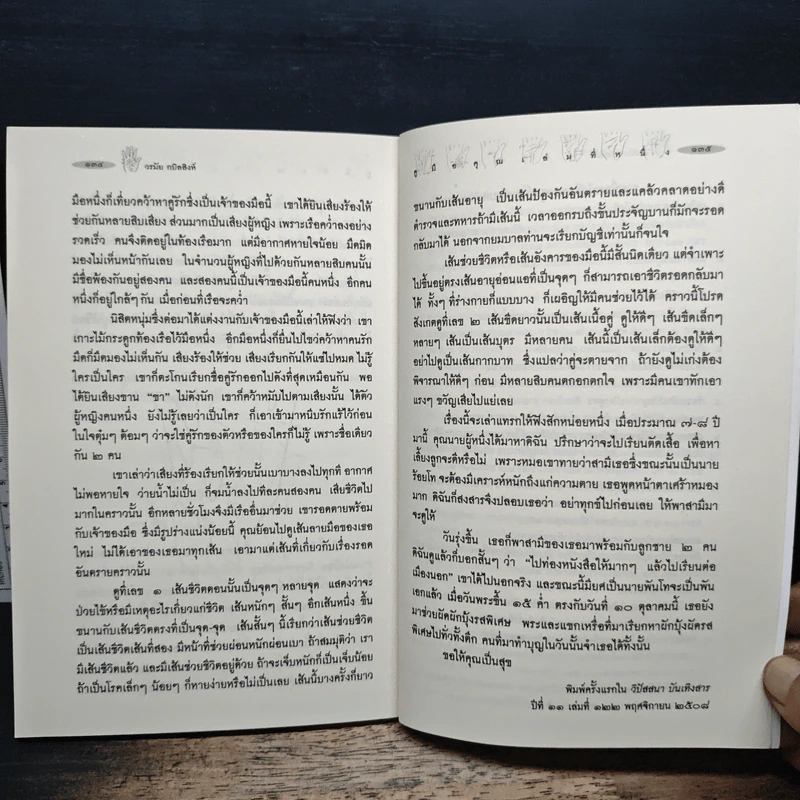 ๑๓๔ วรมัย กบิลสิงห์
มือหนึ่งก็เที่ยวคว้าหาคู่รักซึ่งเป็นเจ้าของมือนี้ เขาได้ยินเสียงร้องให้
ช่วยกันหลายสิบเสียง ส่วนมากเป็นเสียงผู้หญิง เพราะเรือคว่ำลงอย่าง
รวดเร็ว คนจึงติดอยู่ในท้องเรือมาก แต่มีอากาศหายใจน้อย มืดมิด
มองไม่เห็นหน้ากันเลย ในจำนวนผู้หญิงที่ไปด้วยกันหลายสิบคนนั้น
มีชื่อพ้องกันอยู่สองคน และสองคนนี้เป็นเจ้าของมือนี้คนหนึ่ง อีกคน
หนึ่งก็อยู่ใกล้ๆ กัน เมื่อก่อนที่เรือจะคว่ำ
นิสิตหนุ่มซึ่งต่อมาได้แต่งงานกับเจ้าของมือนี้เล่าให้ฟังว่า เขา
เกาะไม้กระดูกท้องเรือไว้มือหนึ่ง อีกมือหนึ่งก็ยื่นไปขวาคว้าหาคนรัก
มืดก็มืดมองไม่เห็นกัน เสียงร้องให้ช่วย เสียงเรียกกันให้แซ่ไปหมด ไม่รู้
ใครเป็นใคร เขาก็ตะโกนเรียกชื่อคู่รักออกไปดังที่สุดเหมือนกัน พอ
ได้ยินเสียงขาน “ขา” ไม่ดังนัก เขาก็คว้าหมับไปตามเสียงนั้น ได้ตัว
ผู้หญิงคนหนึ่ง ยังไม่รู้เลยว่าเป็นใคร ก็เอาเข้ามาหนีบรักแร้ไว้ก่อน
ในใจตุ๋มๆ ต้อมๆ ว่าจะใช่คู่รักของตัวหรือของใครก็ไม่รู้ เพราะชื่อเดียว
กัน ๒ คน
เขาเล่าว่าเสียงที่ร้องเรียกให้ช่วยนั้นเบาบางลงไปทุกที อากาศ
ไม่พอหายใจ ว่ายน้ำไม่เป็น ก็จมน้ำลงไปทีละคนสองคน เสียชีวิตไป
มากในคราวนั้น อีกหลายชั่วโมงจึงมีเรืออื่นมาช่วย เขารอดตายพร้อม
กับเจ้าของมือ ซึ่งมีรูปร่างแน่งน้อยนี้ คุณย้อนไปดูเส้นลายมือของเธอ
ใหม่ ไม่ได้เอาของเธอมาทุกเส้น เอามาแต่เส้นที่เกี่ยวกับเรื่องรอด
อันตรายคราวนั้น
ดูที่เลข ๑ เส้นชีวิตตอนนั้นเป็นจุดๆ หลายจุด แสดงว่าจะ
ป่วยไข้หรือมีเหตุอะไรเกี่ยวแก่ชีวิต เส้นหนักๆ สั้นๆ อีกเส้นหนึ่ง ขึ้น
ขนานกับเส้นชีวิตตรงที่เป็นจุด-จุด เส้นสั้นๆ นี้เรียกว่าเส้นช่วยชีวิต
เป็นเส้นชีวิตเส้นที่สอง มีหน้าที่ช่วยผ่อนหนักผ่อนเบา ถ้าสมมุติว่า เรา
มีเส้นชีวิตแล้ว และมีเส้นช่วยชีวิตอยู่ด้วย ถ้าจะเจ็บหนักก็เป็นเจ็บน้อย
ถ้าเป็นโรคเล็กๆ น้อยๆ ก็หายง่ายหรือไม่เป็นเลย เส้นนี้บางครั้งก็ยาว
ดูมือๆคุณเล่มที่หนึ่ง ๑๓๕
ขนานกับเส้นอายุ เป็นเส้นป้องกันอันตรายและแคล้วคลาดอย่างดี
ตำรวจและทหารถ้ามีเส้นนี้ เวลาออกรบถึงขั้นประจัญบานก็มักจะรอด
กลับมาได้ นอกจากยมบาลท่านจะเรียกบัญชีเท่านั้นก็จนใจ
เส้นช่วยชีวิตหรือเส้นอังคารของมือนี้มีสั้นนิดเดียว แต่จำเพาะ
ไปขึ้นอยู่ตรงเส้นอายุอ่อนแอที่เป็นจุดๆ ก็สามารถเอาชีวิตรอดกลับมา
ได้ ทั้งๆ ที่ร่างกายก็แบบบาง ก็เผอิญให้มีคนช่วยไว้ได้ คราวนี้โปรด
สังเกตดูที่เลข ๒ เส้นขีดยาวนั้นเป็นเส้นเนื้อคู่ ดูให้ดีๆ เส้นขีดเล็กๆ
หลายๆ เส้นเป็นเส้นบุตร มีหลายคน เส้นนี้เป็นเส้นเล็กต้องดูให้ดีๆ
อย่าไปดูเป็นเส้นกากบาท ซึ่งแปลว่าคู่จะตายจาก ถ้ายังดูไม่เก่งต้อง
พิจารณาให้ดีๆ ก่อน มีหลายสิบคนตกอกตกใจ เพราะมีคนเขาทักเอา
แรงๆ ขวัญเสียไปแย่เลย
เรื่องนี้จะเล่าแทรกให้ฟังสักหน่อยหนึ่ง เมื่อประมาณ ๗-๘ ปี
มานี้ คุณนายผู้หนึ่งได้มาหาดิฉัน ปรึกษาว่าจะไปเรียนตัดเสื้อ เพื่อหา
เลี้ยงลูกจะดีหรือไม่ เพราะหมอเขาทายว่าสามีเธอซึ่งขณะนั้นเป็นนาย
ร้อยโท จะต้องมีเคราะห์หนักถึงแก่ความตาย เธอพูดหน้าตาเศร้าหมอง
มาก ดิฉันก็สงสารจึงปลอบเธอว่า อย่าทุกข์ไปก่อนเลย ให้พาสามีมา
จะดูให้
วันรุ่งขึ้น เธอก็พาสามีของเธอมาพร้อมกับลูกชาย ๒ คน
ดิฉันดูแล้วก็บอกสั้นๆ ว่า “ไปท่องหนังสือให้มากๆ แล้วไปเรียนต่อ
เมืองนอก” เขาได้ไปนอกจริง และขณะนี้มียศเป็นนายพันโทจะเป็นพัน
เอกแล้ว เมื่อวันพระขึ้น ๑๕ ค่ำ ตรงกับวันที่ ๑๐ ตุลาคมนี้ เธอยัง
มาช่วยผัดผักบุ้งรสพิเศษ พระและแขกเหรื่อที่มาเรียกหาผักบุ้งผัดรส
พิเศษไปทั่วทั้งตึก คนที่มาทำบุญในวันนั้นจำเธอได้ทั้งนั้น
ขอให้คุณเป็นสุข
พิมพ์ครั้งแรกใน วิปัสสนา บันเทิงสาร
ปีที่ ๑๑ เล่มที่ ๑๒๒ พฤศจิกายน ๒๕๐๘